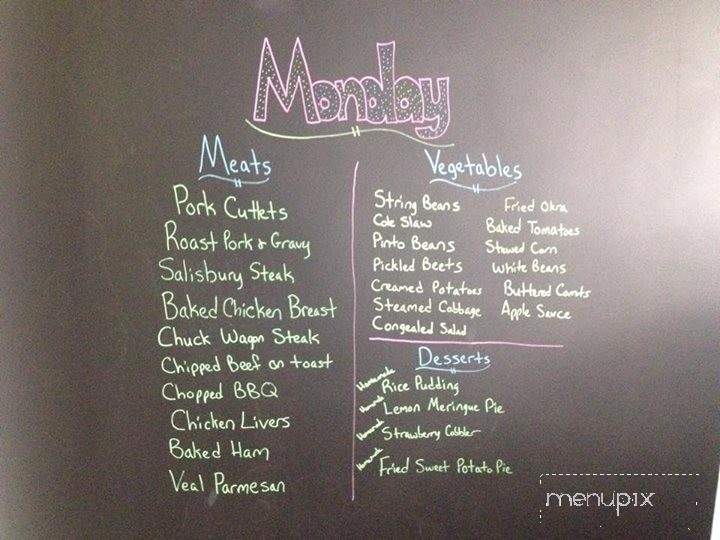 Monday
Meats
Pork Cutlets
Roast Pork & Gravy
Salisbury Steak
Baked Chicken Breast
Chuck Wagon Steak
Chipped Beef on toast
Chopped BBQ
Chicken Livers
Baked Ham
Veal Parmesan
Vegetables
String Beans
Cole Slaw
Pinto Beans
Pickled Beets
Creamed Potatoes
Steamed Cabbage
Congealed Salad
Fried Okra
Baked Tomatoes
Stewed Corn
White Beans
Buttered Carrots
Apple Sauce
Desserts
Homemade Rice Pudding
Homemade Lemon Meringue Pie
Homemade Strawberry Cobbler
Homemade Fried Sweet Potato Pie
menupix